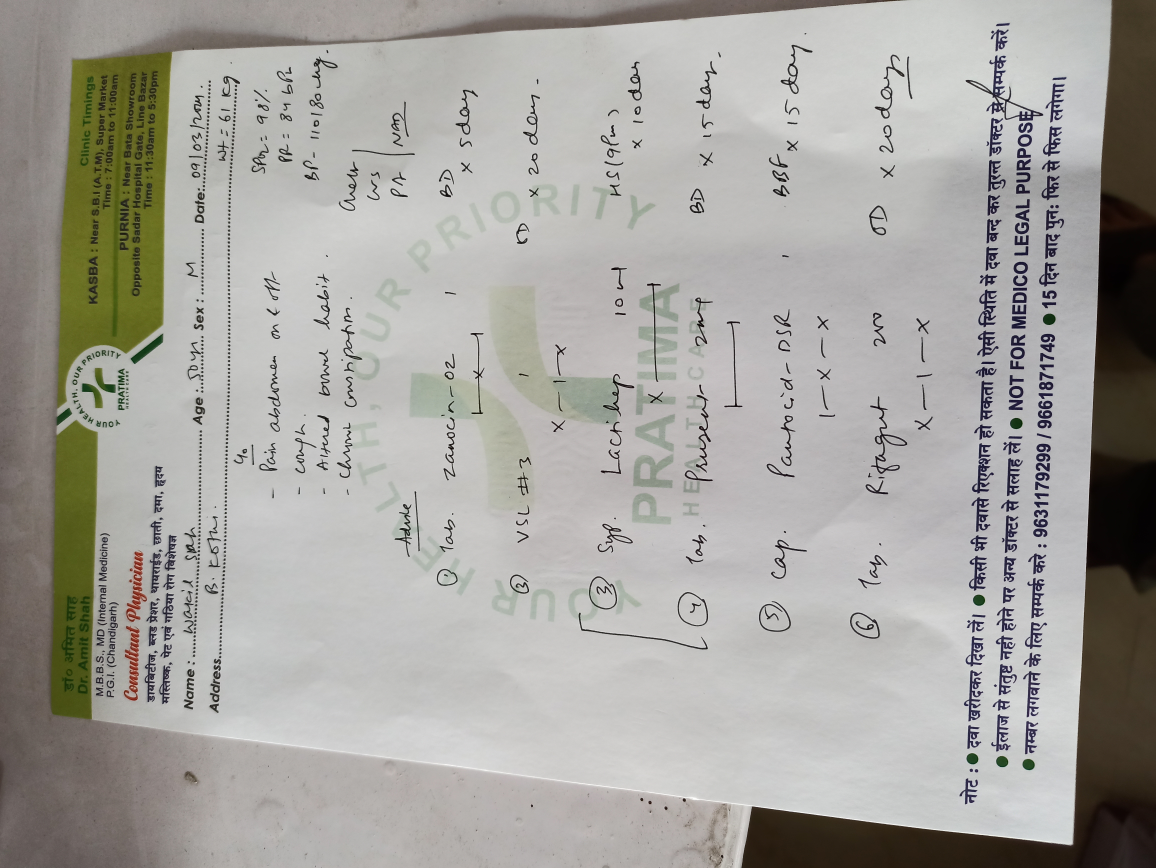 डा० अमित साह
Dr. Amit Shah
M.B.B.S., MD (Internal Medicine)
P.G.I. (Chandigarh)
Consultant Physician
डायबिटीज, ब्लड प्रेशर, थायराईड, छाती, दमा, हृदय
मस्तिष्क, पेट एवं गठिया रोग विशेषज्ञ
YOUR HEALTH, OUR PRIORITY
PRATIMA
HEALTH CARE
Clinic Timings
KASBA : Near S.B.I (A.T.M), Super Market
Time : 7:00am to 11:00am
PURNIA : Near Bata Showroom
Opposite Sadar Hospital Gate, Line Bazar
Time : 11:30am to 5:30pm
Name : Wajid Age 50yr Sex : M Date: 09/03/204
Address B. Kothi Wt = 61 kg.
c/o
- Pain abdomen on & off
- cough.
- Altered bowel habit.
- Chronic constipation.
SPO2 = 98%
PR = 84 bPM
BP - 110/80 mmhg.
Chest
CVS
PA NAD
Advice
① Tab. Zanocin-OZ 1 BD x 5day
1—x—1
② VSL #3 1 OD x 20days.
x—1—x
③ Syp. Lactihep 10ml HS(9Pm) x 10days
x
④ Tab. 2mg BD x 15days.
⑤ Cap. Pantocid-DSR 1 BBF x 15days.
1—x—x
⑥ Tab. Rifagut 200 OD x 20days
x—1—x
YOUR HEALTH, OUR PRIORITY
PRATIMA
HEALTH CARE
नोट : ● दवा खरीदकर दिखा लें। ● किसी भी दवासे रिएक्शन हो सकता है। ऐसी स्थिति में दवा बन्द कर तुरन्त डॉक्टर से सम्पर्क करें।
● ईलाज से संतुष्ट नही होने पर अन्य डॉक्टर से सलाह लें। ● NOT FOR MEDICO LEGAL PURPOSE
● नम्बर लगवाने के लिए सम्पर्क करे : 9631179299 / 9661871749 ● 15 दिन बाद पुन: फिर से फिस लगेगा।